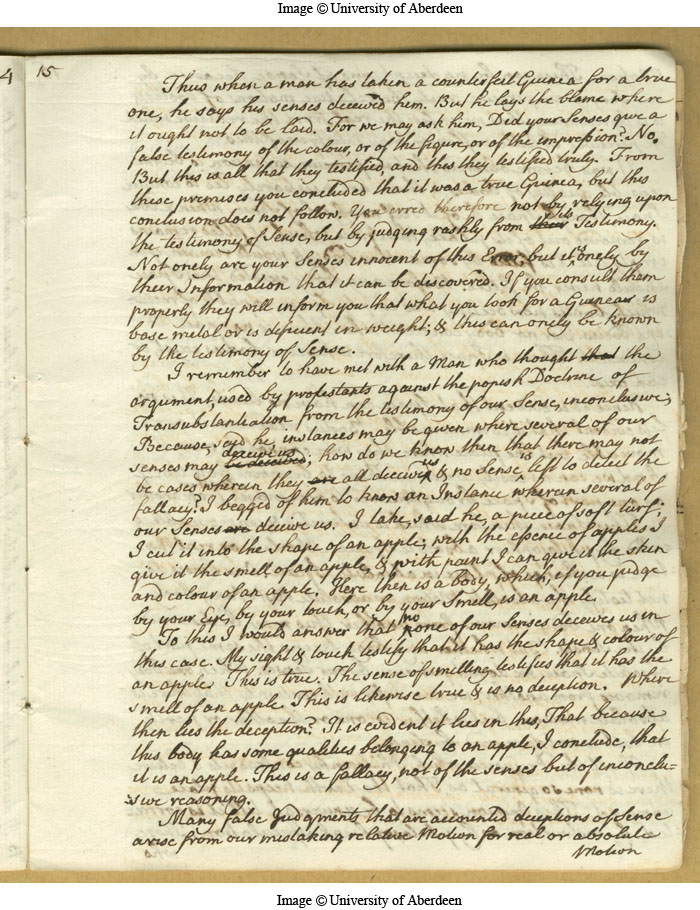 Image © University of Aberdeen
4
15
Thus when a man has taken a counterfeit Guinea for a true
one, he says his senses deceived him. But he lays the blame where
it ought not to be laid. For we may ask him, Did your Senses give a
false testimony of the colour, or of the figure, or of the impression? No.
But this is all that they testified, and this they testified truly. From
these premises you concluded that it was a true Guinea, but this
conclusion does not follow. You erred therefore not by relying upon
the testimony of Sense, but by judging rashly from their its Testimony.
Not onely are your Senses innocent of this Error, but it is onely by
their Information that it can be discovered. If you consult them
properly they will inform you that what you took for a Guinea is
base metal or is deficient in weight; & this can onely be known
by the testimony of Sense.
I remember to have met with a Man who thought that the
argument, used by protestants against the popish Doctrine of
Transubstantiation from the testimony of our Sense, inconclusive;
Because, said he, instances may be given where several of our
senses may be deceived deceive us; how do we know then that there may not
be cases wherein they are all deceive us & no Sense is left to detect the
fallacy? I begged of him to know an Instance wherein several of
our Senses are deceive us. I take, said he, a piece of soft turf;
I cut it into the shape of an apple; with the essence of apples I
give it the smell of an apple, & with paint I can give it the skin
and colour of an apple. Here then is a body, which, if you judge
by your Eye, by your touch, or by your Smell, is an apple.
To this I would answer that no none of our Senses deceives us in
this case. My sight & touch testify that it has the shape & colour of
an apple. This is true. The sense of smelling testifies that it has the
smell of an apple. This is likewise true & is no deception. Where
then lies the deception? It is evident it lies in this, That because
this body has some qualities belonging to an apple, I conclude, that
it is an apple. This is a fallacy, not of the senses but of inconclu=
=sive reasoning.
Many false Judgments that are accounted deceptions of Sense
arise from our mistaking relative Motion for real or absolute
Motion
Image © University of Aberdeen